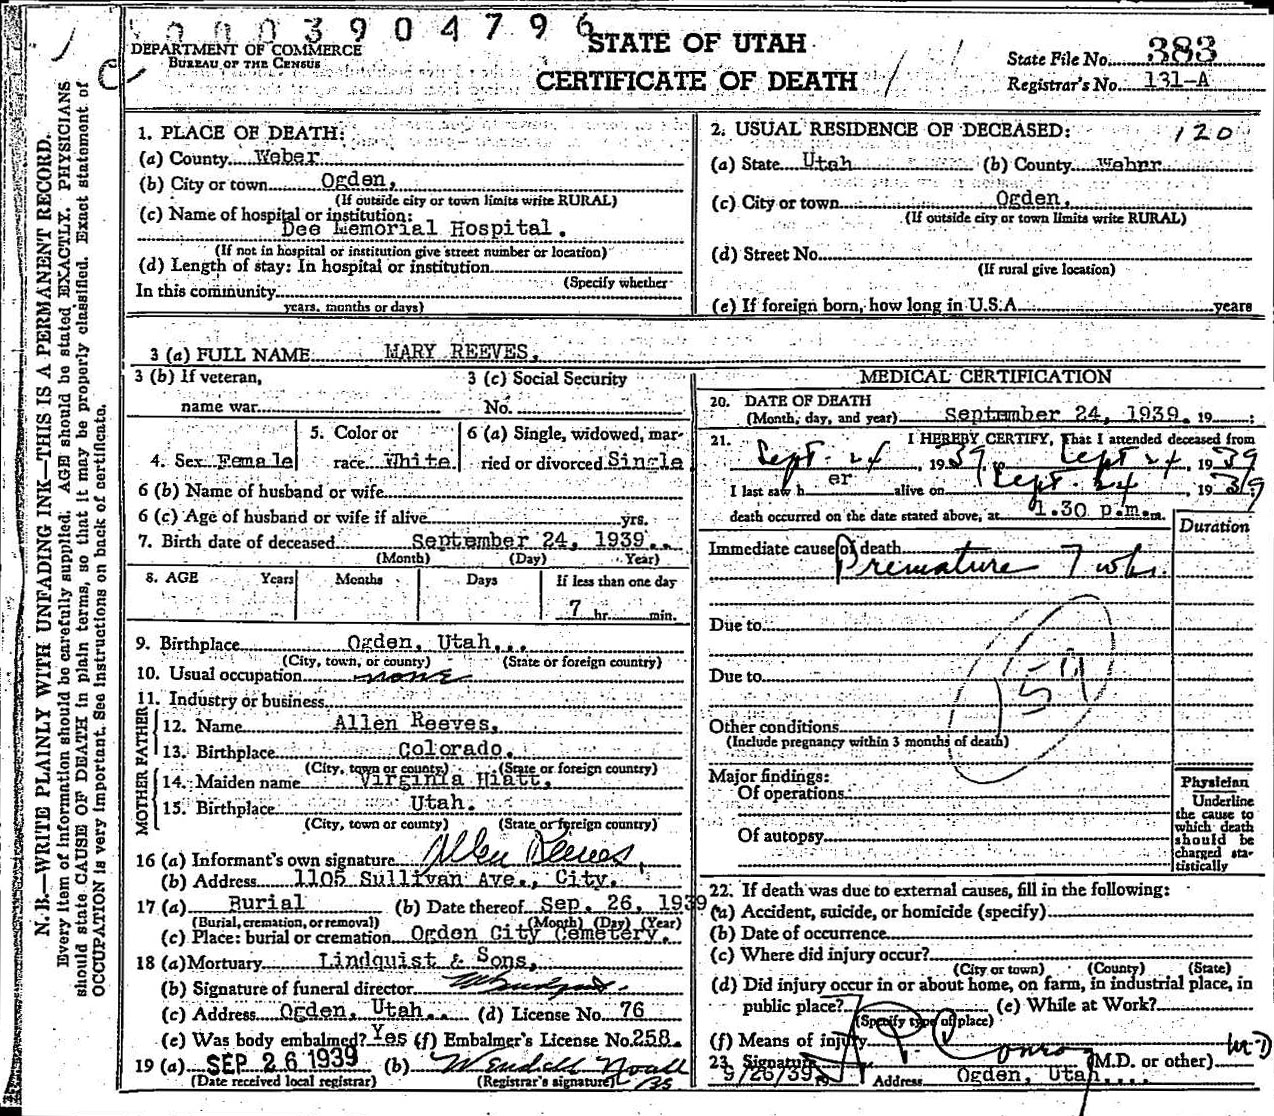 0003904796
DEPARTMENT OF COMMERCE
BUREAU OF THE CENSUS
STATE OF UTAH
CERTIFICATE OF DEATH
State File No. 383
Registrar's No. 131-A
N. B.—WRITE PLAINLY WITH UNFADING INK—THIS IS A PERMANENT RECORD.
Every item of information should be carefully supplied. AGE should be stated EXACTLY. PHYSICIANS
should state CAUSE OF DEATH in plain terms, so that it may be properly classified. Exact statement of
OCCUPATION is very important. See instructions on back of certificate.
1. PLACE OF DEATH:
(a) County Weber
(b) City or town Ogden,
(If outside city or town limits write RURAL)
(c) Name of hospital or institution:
Dee Memorial Hospital.
(If not in hospital or institution give street number or location)
(d) Length of stay: In hospital or institution
(Specify whether
In this community
years, months or days)
2. USUAL RESIDENCE OF DECEASED: 120
(a) State Utah (b) County Weber
(c) City or town Ogden,
(If outside city or town limits write RURAL)
(d) Street No.
(If rural give location)
(e) If foreign born, how long in U.S.A. years
3 (a) FULL NAME MARY REEVES,
3 (b) If veteran, 3 (c) Social Security
name war No.
4. Sex Female 5. Color or race White 6 (a) Single, widowed, married or divorced Single
6 (b) Name of husband or wife
6 (c) Age of husband or wife if alive yrs.
7. Birth date of deceased September 24, 1939..
(Month) (Day) Year)
8. AGE Years Months Days If less than one day
7 hr. min.
9. Birthplace Ogden, Utah...
(City, town, or county) (State or foreign country)
10. Usual occupation none
11. Industry or business
FATHER
12. Name Allen Reeves,
13. Birthplace Colorado.
(City, town or county) (State or foreign country)
MOTHER
14. Maiden name Virginia Hiatt,
15. Birthplace Utah.
(City, town or county) (State or foreign country)
16 (a) Informant's own signature Allen Reeves
(b) Address 1105 Sullivan Ave., City.
17 (a) Burial (b) Date thereof Sep. 26, 1939
(Burial, cremation, or removal) (Month) (Day) (Year)
(c) Place: burial or cremation Ogden City Cemetery.
18 (a) Mortuary Lindquist & Sons,
(b) Signature of funeral director
(c) Address Ogden, Utah.. (d) License No. 76
(e) Was body embalmed? Yes (f) Embalmer's License No. 258.
19 (a) SEP 26 1939 (b) W Endell Noall
(Date received local registrar) (Registrar's signature)
MEDICAL CERTIFICATION
20. DATE OF DEATH
(Month, day, and year) September 24, 1939. 19 ;
21. I HEREBY CERTIFY, That I attended deceased from
Sept. 24, 1939, to Sept 24, 1939
I last saw h er alive on Sept. 24, 1939
death occurred on the date stated above, at 1.30 p.m.m.
Duration
Immediate cause of death
Premature 7 wks.
Due to
159
Due to
Other conditions
(Include pregnancy within 3 months of death)
Major findings:
Of operations
Of autopsy
Physician
Underline
the cause to
which death
should be
charged sta-
tistically
22. If death was due to external causes, fill in the following:
(a) Accident, suicide, or homicide (specify)
(b) Date of occurrence
(c) Where did injury occur?
(City or town) (County) (State)
(d) Did injury occur in or about home, on farm, in industrial place, in
public place? (e) While at Work?
(Specify type of place)
(f) Means of injury
23. Signature Conroy (M.D. or other) MD
9/26/39. Address Ogden, Utah....